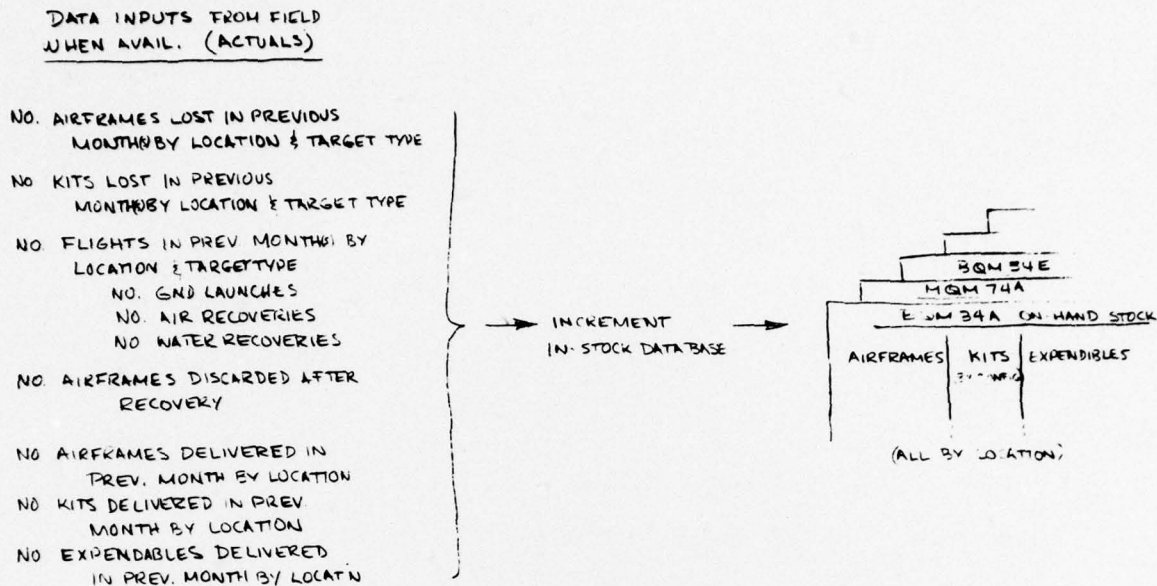 DATA INPUTS FROM FIELD
WHEN AVAIL. (ACTUALS)
NO. AIRFRAMES LOST IN PREVIOUS
MONTH(S) BY LOCATION & TARGET TYPE
NO KITS LOST IN PREVIOUS
MONTH(S) BY LOCATION & TARGET TYPE
NO. FLIGHTS IN PREV. MONTH(S) BY
LOCATION & TARGET TYPE
NO. GND LAUNCHES
NO. AIR RECOVERIES
NO WATER RECOVERIES
NO. AIRFRAMES DISCARDED AFTER
RECOVERY
NO AIRFRAMES DELIVERED IN
PREV. MONTH BY LOCATION
NO KITS DELIVERED IN PREV.
MONTH BY LOCATION
NO EXPENDABLES DELIVERED
IN PREV. MONTH BY LOCATN
INCREMENT
IN-STOCK DATA BASE
BQM 34E
MQM 74A
BQM 34A ON-HAND STOCK
AIRFRAMES KITS EXPENDIBLES
BY CONFIG
(ALL BY LOCATION)